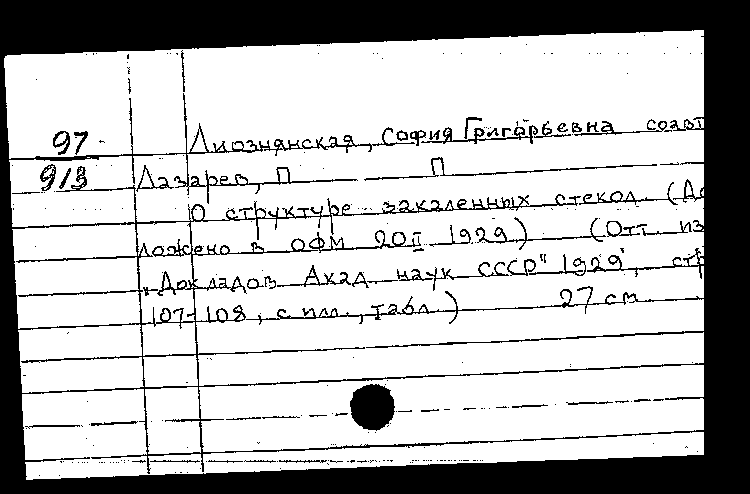 97
913
Лиознянская, София Григорьевна соавт
Лазарев, П П
О структуре закаленных стекол. (До
ложено в ОФМ 20 II 1929) (Отт. из
"Докладов Акад. наук СССР" 1929, стр
107-108, с илл., табл.) 27 см.